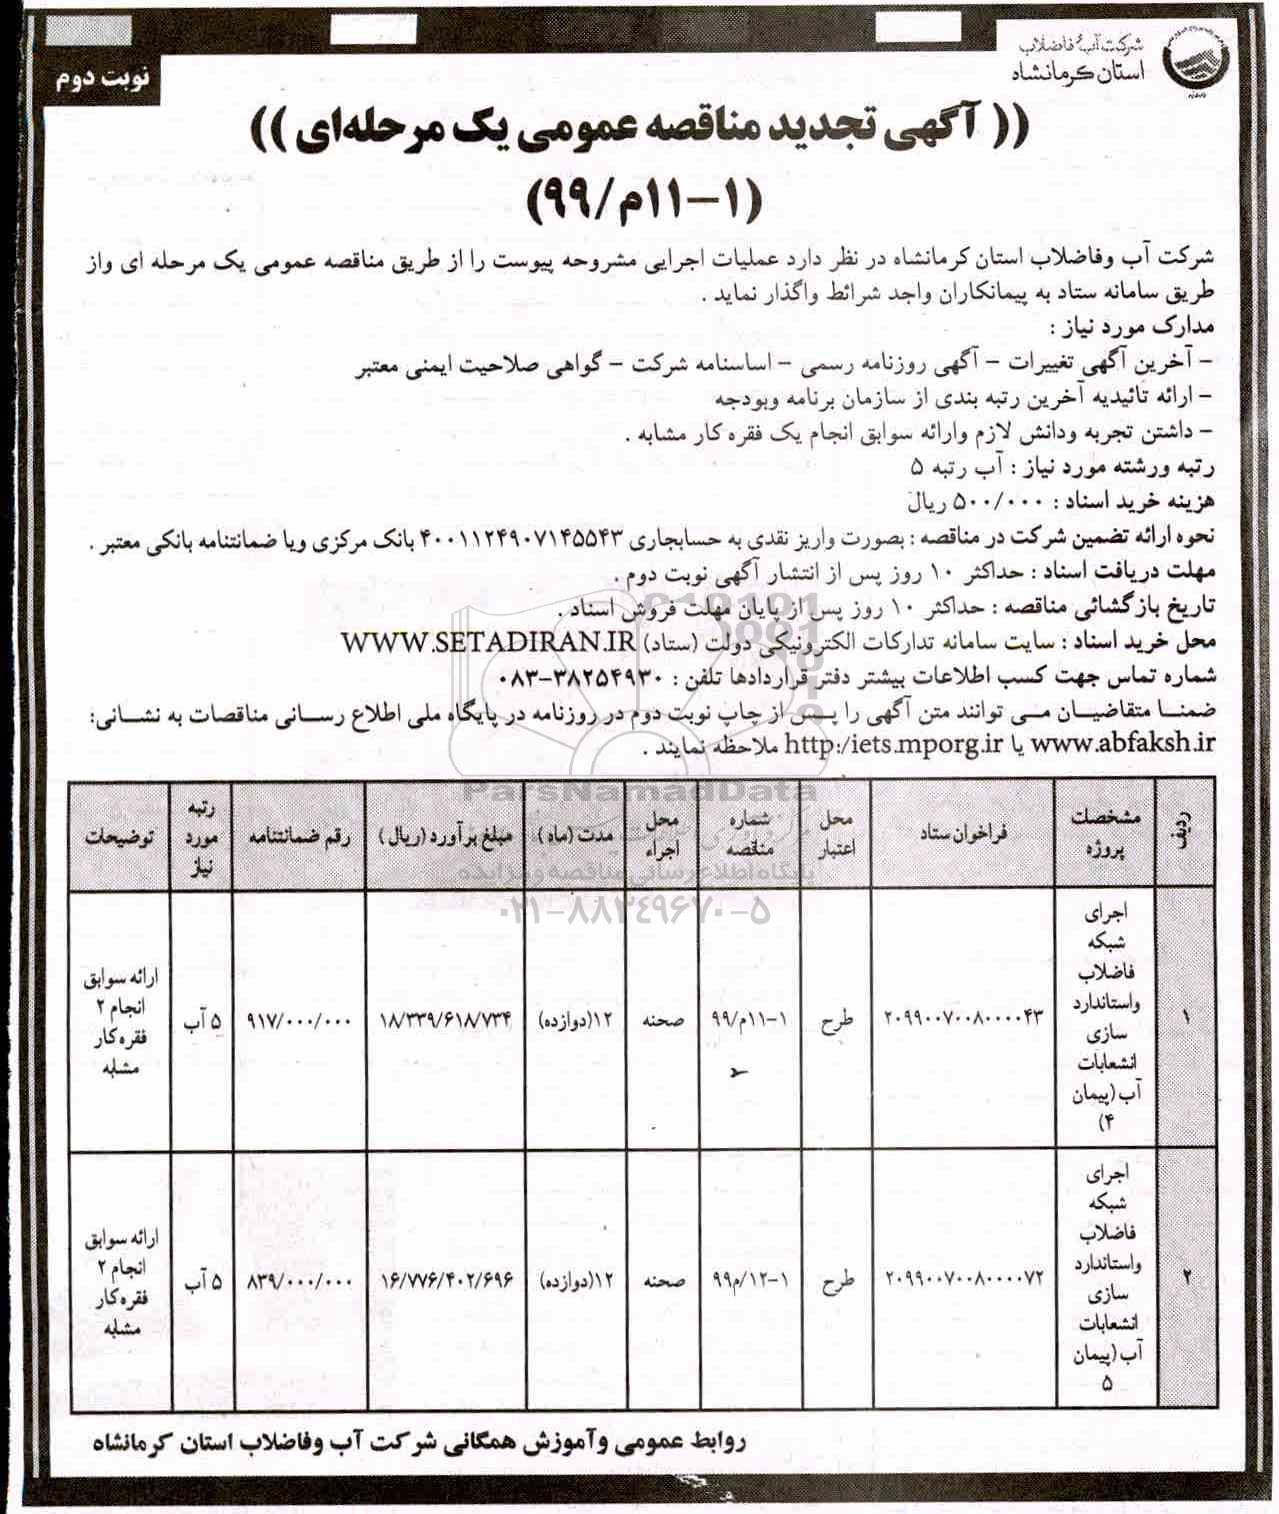 شرکت آب و فاضلاب
استان کرمانشاه
نوبت دوم
(( آگهی تجدید مناقصه عمومی یک مرحله‌ای ))
(۱-۱۱م/۹۹)
شرکت آب وفاضلاب استان کرمانشاه در نظر دارد عملیات اجرایی مشروحه پیوست را از طریق مناقصه عمومی یک مرحله ای واز
طریق سامانه ستاد به پیمانکاران واجد شرائط واگذار نماید .
مدارک مورد نیاز :
- آخرین آگهی تغییرات - آگهی روزنامه رسمی - اساسنامه شرکت - گواهی صلاحیت ایمنی معتبر
- ارائه تائیدیه آخرین رتبه بندی از سازمان برنامه وبودجه
- داشتن تجربه ودانش لازم وارائه سوابق انجام یک فقره کار مشابه .
رتبه ورشته مورد نیاز : آب رتبه ۵
هزینه خرید اسناد : ۵۰۰/۰۰۰ ریال
نحوه ارائه تضمین شرکت در مناقصه : بصورت واریز نقدی به حسابجاری ۴۰۰۱۱۲۴۹۰۷۱۴۵۵۴۳ بانک مرکزی ویا ضمانتنامه بانکی معتبر .
مهلت دریافت اسناد : حداکثر ۱۰ روز پس از انتشار آگهی نوبت دوم .
تاریخ بازگشائی مناقصه : حداکثر ۱۰ روز پس از پایان مهلت فروش اسناد .
محل خرید اسناد : سایت سامانه تدارکات الکترونیکی دولت (ستاد) WWW.SETADIRAN.IR
شماره تماس جهت کسب اطلاعات بیشتر دفتر قراردادها تلفن : ۳۸۲۵۴۹۳۰-۰۸۳
ضمنا متقاضیان می توانند متن آگهی را پس از چاپ نوبت دوم در روزنامه در پایگاه ملی اطلاع رسانی مناقصات به نشانی:
www.abfaksh.ir یا http:/iets.mporg.ir ملاحظه نمایند .
ParsNamadData
پایگاه اطلاع رسانی مناقصه و مزایده
۰۲۱-۸۸۳۴۹۶۷۰-۵
ردیف | مشخصات پروژه | فراخوان ستاد | محل اعتبار | شماره مناقصه | محل اجراء | مدت (ماه ) | مبلغ برآورد (ریال ) | رقم ضمانتنامه | رتبه مورد نیاز | توضیحات
۱ | اجرای شبکه فاضلاب واستاندارد سازی انشعابات آب (پیمان ۴) | ۲۰۹۹۰۰۷۰۰۸۰۰۰۰۴۳ | طرح | ۱-۱۱م/۹۹ | صحنه | ۱۲(دوازده) | ۱۸/۳۳۹/۶۱۸/۷۳۴ | ۹۱۷/۰۰۰/۰۰۰ | ۵ آب | ارائه سوابق انجام ۲ فقره کار مشابه
۲ | اجرای شبکه فاضلاب واستاندارد سازی انشعابات آب (پیمان ۵ | ۲۰۹۹۰۰۷۰۰۸۰۰۰۰۷۲ | طرح | ۱-۱۲/م۹۹ | صحنه | ۱۲(دوازده) | ۱۶/۷۷۶/۴۰۲/۶۹۶ | ۸۳۹/۰۰۰/۰۰۰ | ۵ آب | ارائه سوابق انجام ۲ فقره کار مشابه
روابط عمومی وآموزش همگانی شرکت آب وفاضلاب استان کرمانشاه